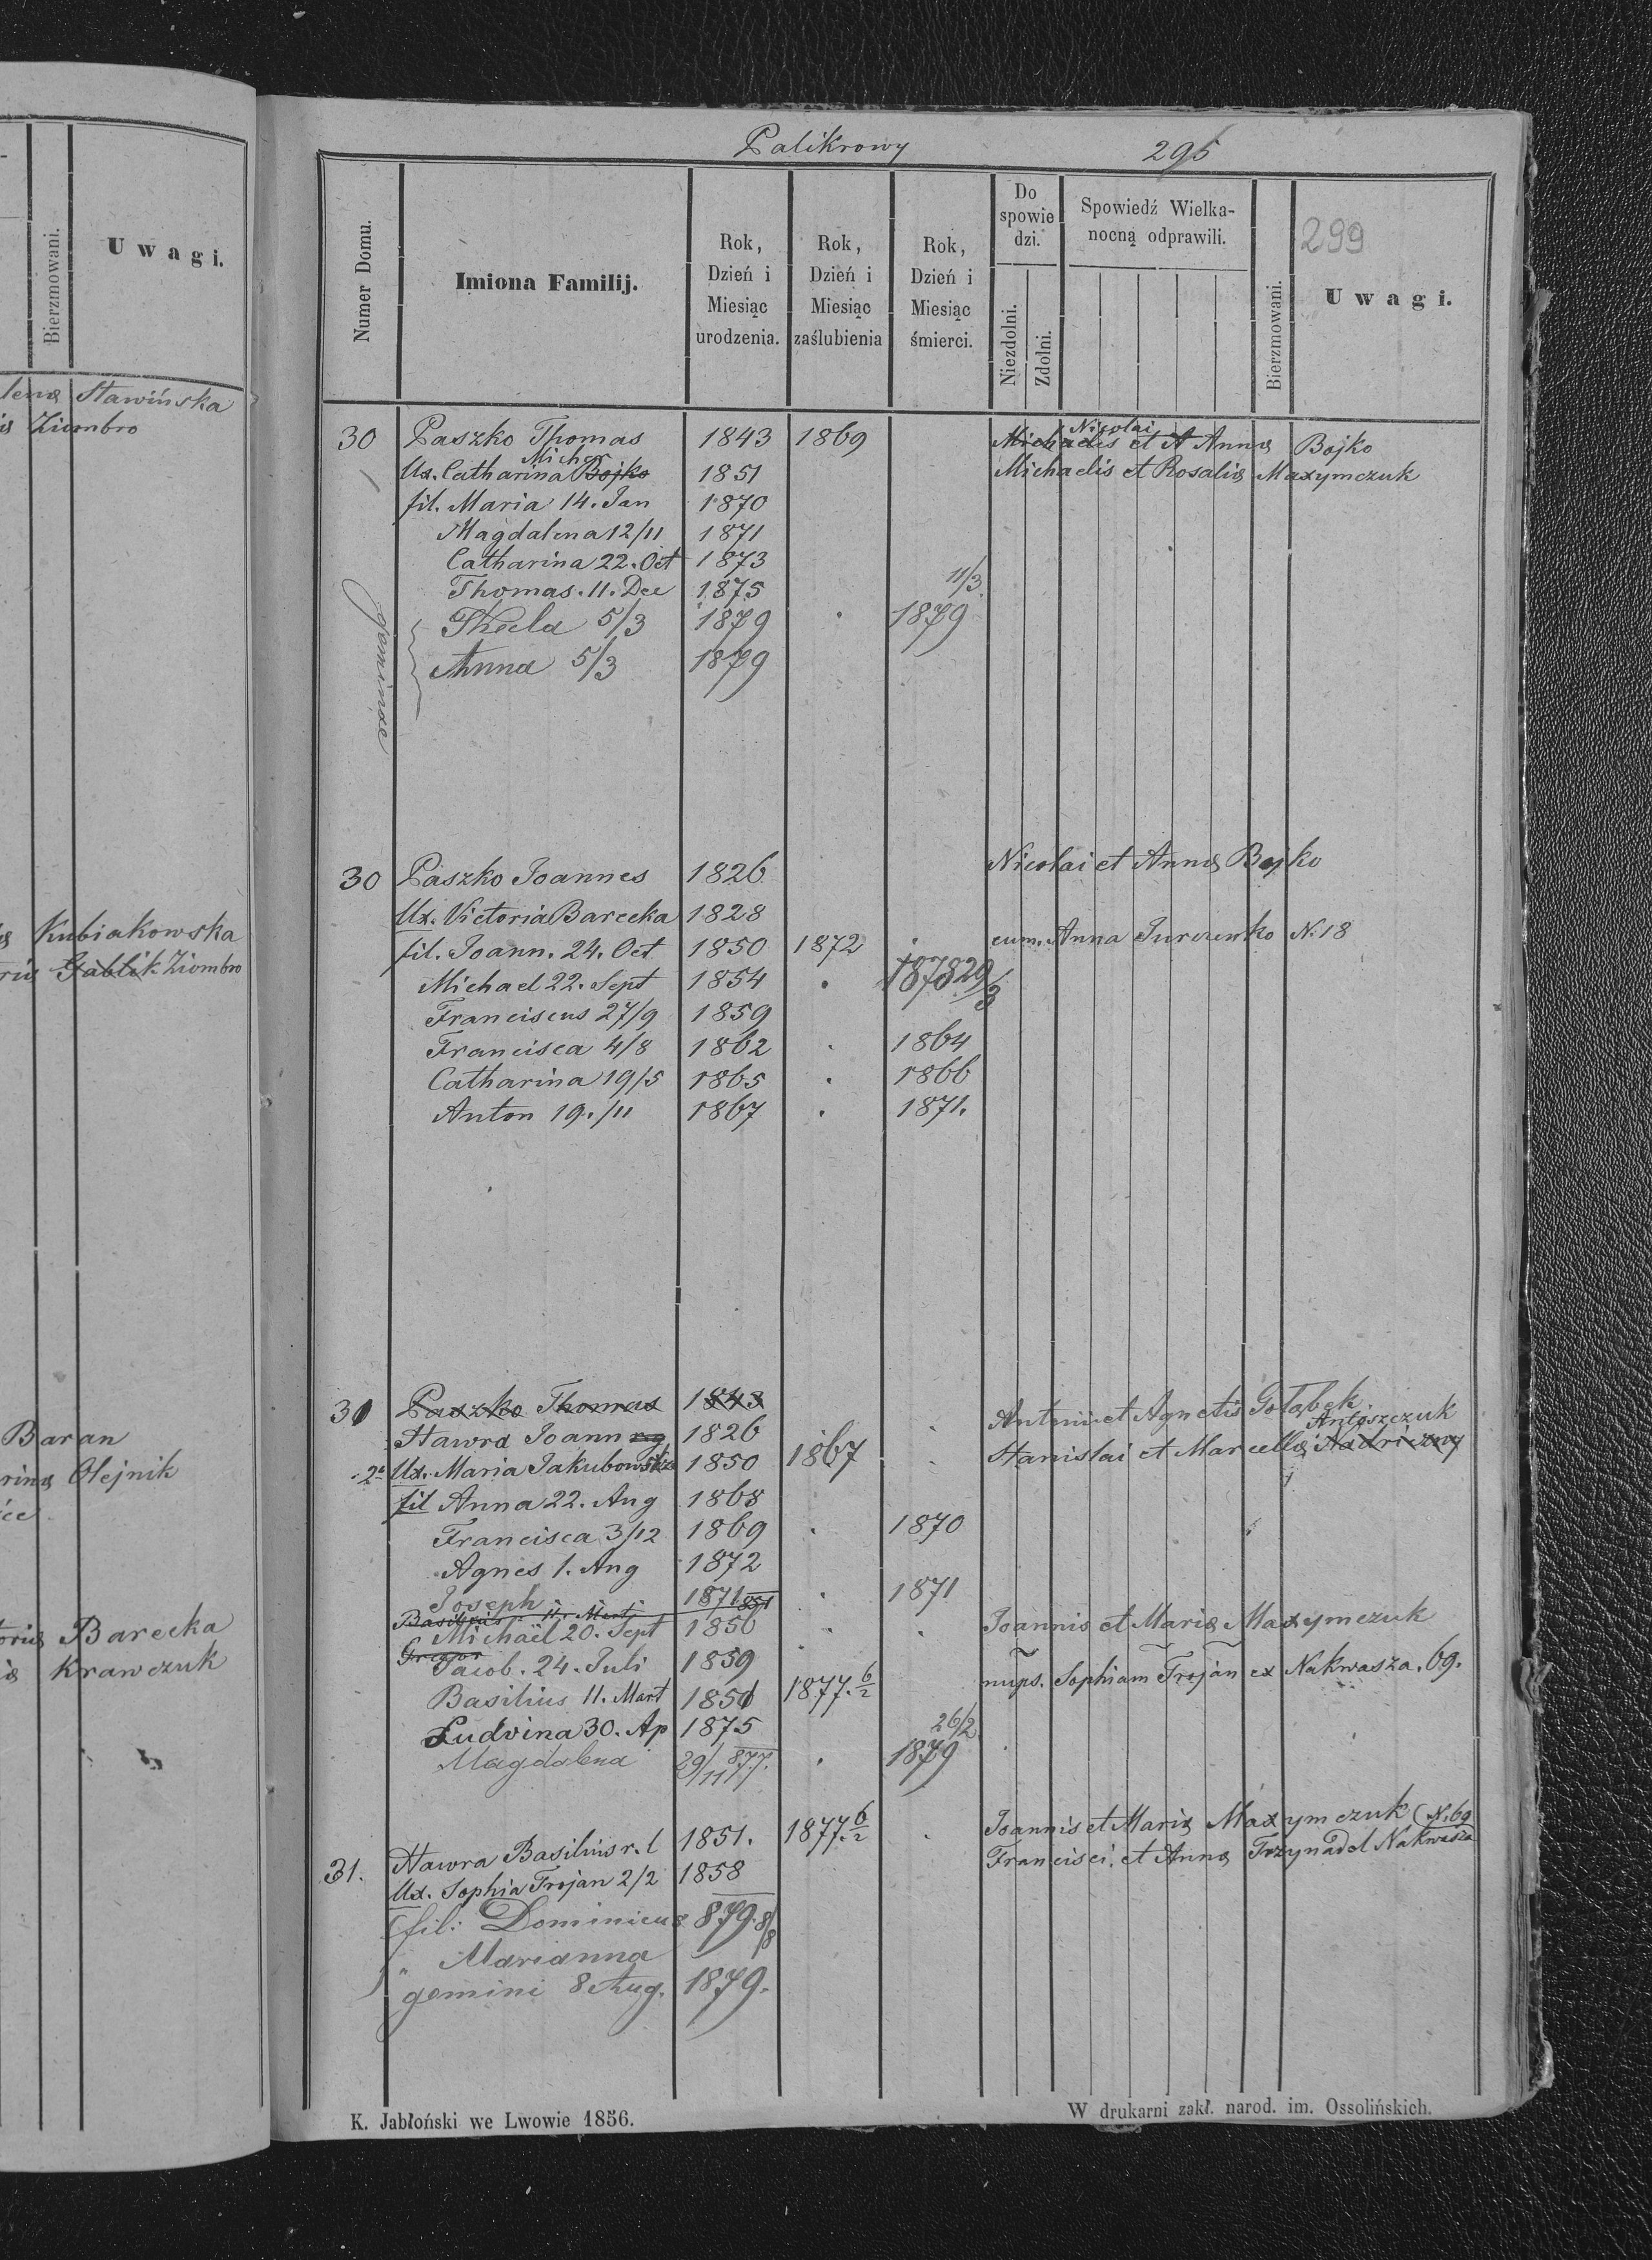 Palikrowy 295
Numer Domu. Imiona Familij. Rok, Dzień i Miesiąc urodzenia. Rok, Dzień i Miesiąc zaślubienia Rok, Dzień i Miesiąc śmierci. Do spowiedzi. Niezdolni. Zdolni. Spowiedź Wielkanocną odprawili. Bierzmowani. Uwagi.
299
Bierzmowani. Uwagi.
Stawińska
Ziombro
Kubiakowska
Gablik Ziombro
Baran
Olejnik
Barecka
Krawczuk
Nicolai
30 Paszko Thomas 1843 1869 Michaelis et A Annæ Bojko
Micher
Ux. Catharina Bojko 1851 Michaelis et Rosaliæ Maxymczuk
fil. Maria 14. Jan 1870
Magdalena 12/11 1871
Catharina 22. Oct 1873
Thomas. 11. Dec 1875
geminae
Thecla 5/3 1879 11/3 1879
Anna 5/3 1879
30 Paszko Joannes 1826 Nicolai et Annæ Bojko
Ux. Victoria Barecka 1828
fil. Joann. 24. Oct 1850 1872 cum. Anna Jurczenko N. 18
Michael 22. Sept 1854 1878 29/3
Franciscus 27/9 1859
Francisca 4/8 1862 1864
Catharina 19/5 1865 1866
Anton 19./11 1867 1871.
31 Paszko Thomas 1843
Hawra Joann 1826 Antonii et Agnetis Gołąbek
Antoszczuk
2ᵃ Ux. Maria Jakubowska 1850 1867 Stanislai et Marcellæ
fil Anna 22. Aug 1868
Francisca 3/12 1869 1870
Agnes 1. Aug 1872
Joseph 1871 1871
Basilius 11. Mart 851
Michaël 20. Sept 1856 Joannis et Mariæ Maxymczuk
Gregor
Jacob. 24. Juli 1859
Basilius 11. Mart 1851 1877. 6/2 nups. Sophiam Trojan ex Nakwasza. 69.
Ludvina 30. Ap 1875
Magdalena 29/11 877. 26/2 1879
31. Hawra Basilius r. l 1851. 1877. 6/2 Joannis et Mariæ Maxymczuk (N. 69
Ux. Sophia Trojan 2/2 1858 Francisci. et Annæ Trzynadel Nakwasza
fil: Dominicus 879. 8/8
" Marianna
gemini 8 Aug. 1879.
K. Jabłoński we Lwowie 1856.
W drukarni zakł. narod. im. Ossolińskich.